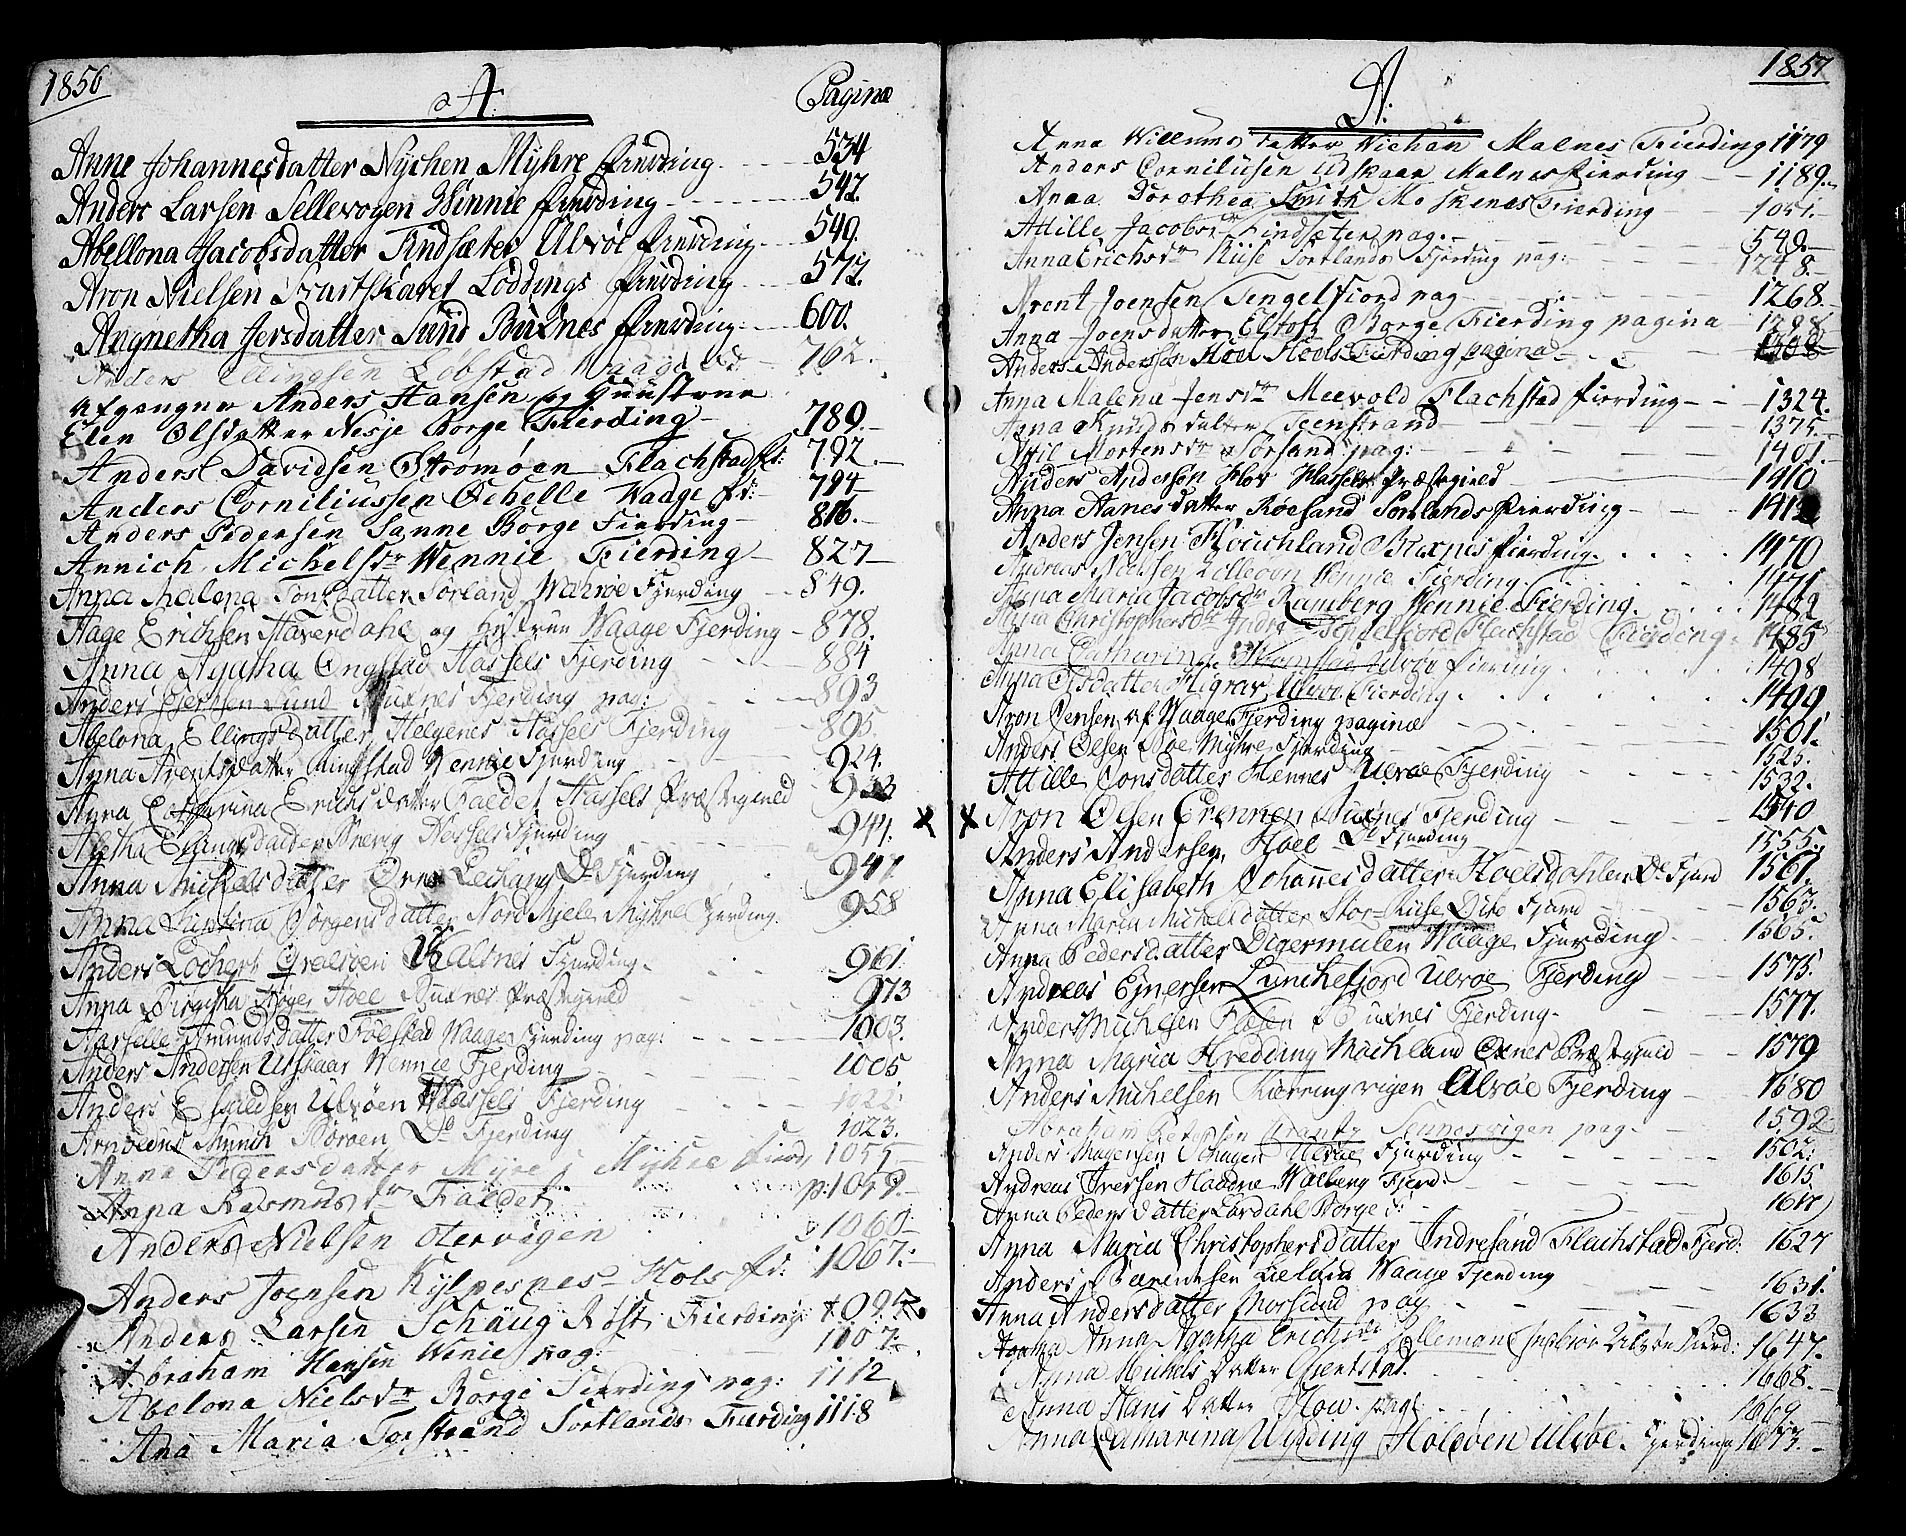 1856
A
Paginæ
Anne Johannesdatter Nychen Myhre Fierding 534
Anders Larsen Sellevogen Winnie Fierding 547.
Abellona Jacobsdatter Findsæter Ulvöe Fierding 549.
Aron Nielsen Svartskaret Löddings Fierding 577.
Angnetha Jersdatter Sund Buxnes Fierding 600.
Anders Ellingsen Löbstad Waage 762.
Afgangne Anders Hansen og Huustrue
Elen Olsdatter Nesje Borge Fierding 789.
Anders Davidsen Strømøen Flachstad fr: 792.
Anders Corniliussen Ochelle Waage fr: 794
Anders Pedersen Sanne Borge Fierding 816.
Annich Michelsdr Wennie Fierding 827
Anna Malena Tonsdatter Sørland Wærøe Fjerding 849.
Aage Erichsen Haverdahl og Hustrue Waage Fjerding 878.
Anna Agatha Ongstad Hassels Fjerding 884
Anders Jensen Sund Buxnes Fjerding pag: 893
Abelona Ellingsdatter Helgenes Hassels Fjerding 895.
Anna Arentsdatter Ringstad Wennie Fjerding 924.
Anna Catharina Erichsdatter Faldet Hassels Præstegield 933
Aletha Ellingsdatter Kræng Hassels Fjerding 944.
Anna Michelsdatter Øvre Lechang Do Fjerding 947.
Anna Christina Jörgensdatter Nord Mjele Myhre Fjerding. 958
Anders Lochert Græsøen Malnes Fjerding. 961.
Anna Birgitha Røger Hoel Buxnes Præstegield 973
Aarselle Amundsdatter Foelstad Waage Fjerding pag: 1003.
Anders Andersen Utskaar Wennie Fjerding 1005
Anders Esaildsen Ulvöen Hassels Fjerding 1022.
Arnoldus Munch Börøen Do Fjerding 1023.
Anna Pedersdatter Myre i Myhre Fierd, 1055
Anna Rasmusdr Faldet p: 1049.
Anders Nielsen Otervigen 1060
Anders Joensen Kylpesnes Hols fr: 1067.
Anders Larsen Schaug Röst Fierding: 1095
Abraham Hansen Wenie pag: 1107.
Abelona Nielsdr Borge Fierding pag: 1112
Ana Maria Torstrand Sortlands Fierding 1118

1857
A.
Anna Willumsdatter Wichan Malnes Fierding 1179
Anders Corniliusen Udskaar Malnes Fierding 1189.
Anna Dorothea Smith Moskenes Fierding 1051.
Attille Jacobsdr Findsæter pag. 549.
Anna Erichsdr Kiise Sortlands Fjerding pag: 1248.
Arent Joensen Tengelfiord pag 1268.
Anna Joensdatter Eltoft Borge Fierding pagina 1298
Anders Andersen Hoel Hoels Fierding pagina 1308
Anna Malena Jensdr Meevold Flachstad Fierding 1324.
Anna Knudsdatter Teenstrand 1375.
Attil Mortensdr Sörsand pag: 1401.
Anders Andersen Hov Hassels Præstegield 1410
Anna Hanesdatter Röesand Sortlands Fierding 1412
Anders Jensen Houchland Buxnes Fierding. 1470
Andreas Nielsen Killeoen Wennie Fierding. 1471
Anna Maria Jacobsdr Ramberg Wennie Fierding. 1482
Anna Christophersdr Indre Tengelfjord Flachstad Fierding 1485
Anna Catharina Ulvöe Fierding 1498
Anna Olsdatter Higrav Ulvöe Fierding. 1499
Aron Jensen af Waage Fjerding paginæ 1501.
Anders Olsen Böe Myhre Fjerding 1525.
Attille Jonsdatter Hennes Ulvöe Fjerding 1532.
X X Aron Olsen Grennen Buxnes Fjerding 1540
Anders Andersen, Hoel Do Fjerding 1555.
Anna Elisabeth Johannesdatter Hoelsdahlen Do Fjerd 1561.
Anna Maria Michelsdatter Stor-Kiise Dito Fjerd 1563.
Anna Pedersdatter Digermulen Waage Fjerding 1565.
Andreas Ejnersen Lunchefjord Ulvöe Fjerding 1575.
Anders Michelsen Flesen Buxnes Fjerding. 1577.
Anna Maria Hredding Machland Oxnes Præstegield 1579
Anders Michelsen Kierringvigen Ulvöe Fjerding 1680
Abraham Petersen Crantz Sennesvigen pag. 1592
Anders Mogensen Schagen Ulvöe Fjerding 1502:
Andreas Iversen Haadne Walberg Fjerd: 1615.
Anna Pedersdatter Lördahl Borge d: 1617
Anna Maria Christophersdatter Indresand Flachstad Fjerd: 1627
Anders Bærentsen Lieland Waage Fjerding 1631.
Anna Andersdatter Morsund pag 1633
Agatha Anna Agatha Erichsdr Ulvöe Fierd: 1647.
Anna Michelsdatter Gientstad. 1668.
Anna Hans Datter How pag: 1669
Anna Catharina Widding Holsøen Ulvöe. Fjerding 1673.